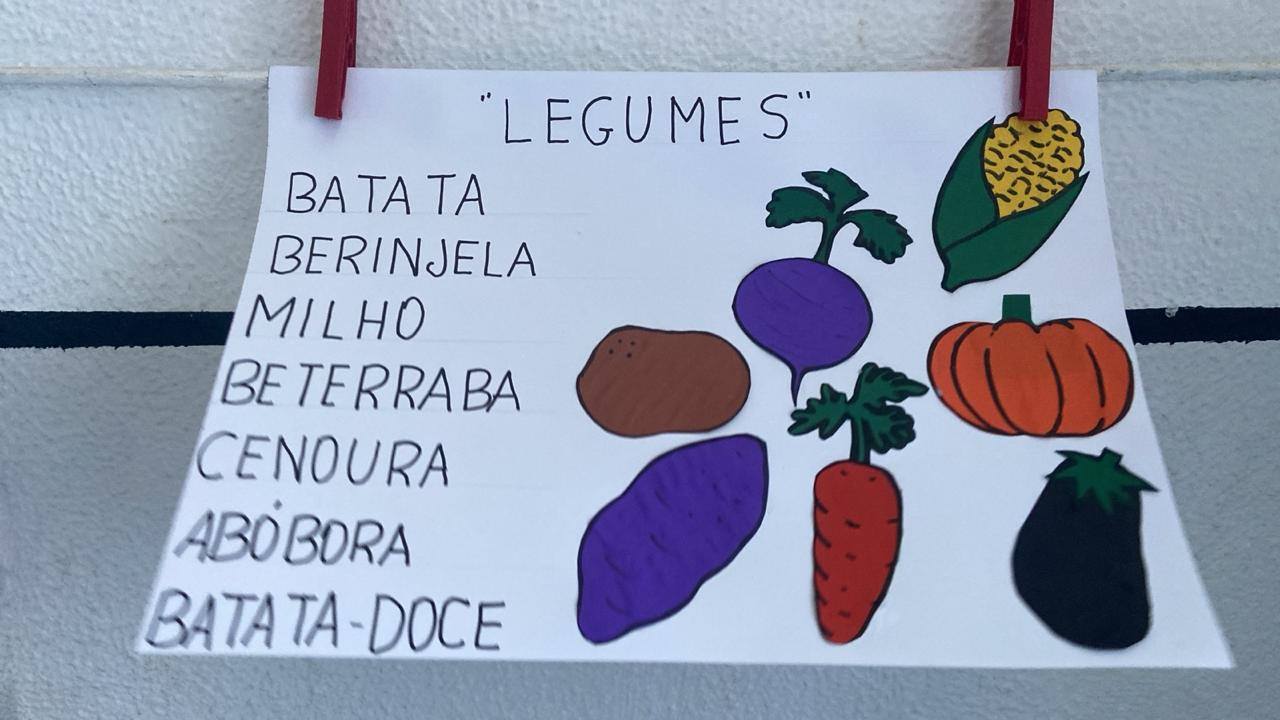 "LEGUMES"
BATATA
BERINJELA
MILHO
BETERRABA
CENOURA
ABÓBORA
BATATA-DOCE